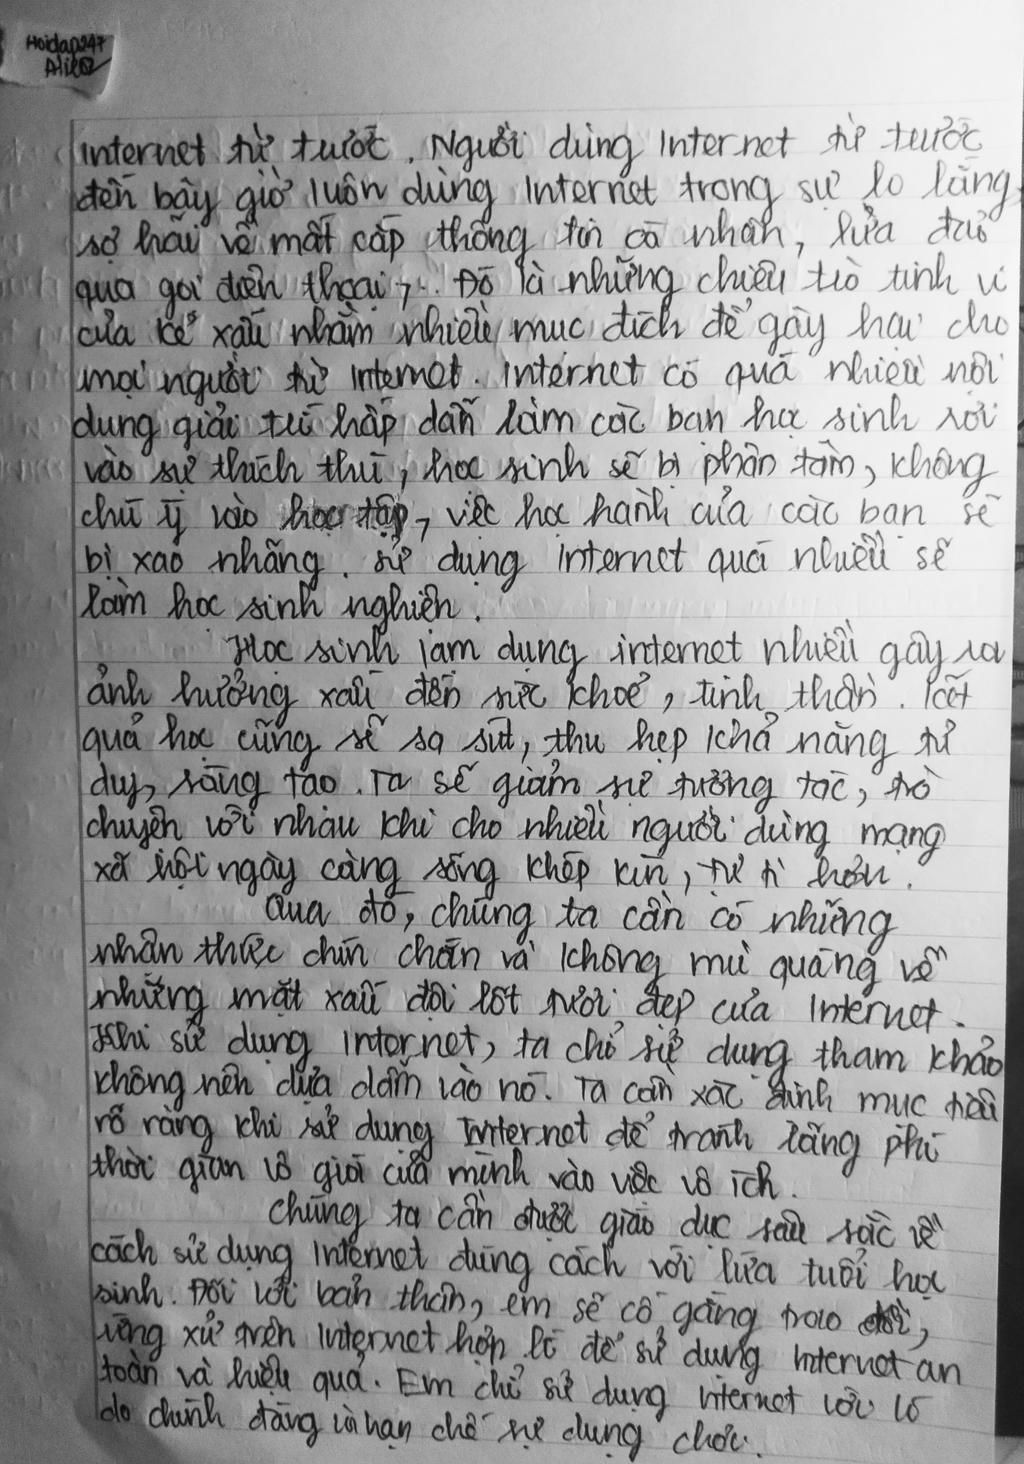 Hoidap247
internet từ trước. Người dùng Internet từ trước
đến bây giờ luôn dùng Internet trong sự lo lắng,
sợ hãi về mất cắp thông tin cá nhân, lừa đảo
qua gọi điện thoại,... Đó là những chiêu trò tinh vi
của kẻ xấu nhằm nhiều mục đích để gây hại cho
mọi người từ Internet. Internet có quá nhiều nội
dung giải trí hấp dẫn làm các bạn học sinh rơi
vào sự thích thú, học sinh sẽ bị phân tâm, không
chú ý vào học tập, việc học hành của các bạn sẽ
bị xao nhãng. sử dụng internet quá nhiều sẽ
làm học sinh nghiện.
Học sinh lạm dụng internet nhiều gây ra
ảnh hưởng xấu đến sức khoẻ, tinh thần. Kết
quả học cũng sẽ sa sút, thu hẹp khả năng tư
duy, sáng tạo. Ta sẽ giảm sự tương tác, trò
chuyện với nhau khi cho nhiều người dùng mạng
xã hội ngày càng sống khép kín, tự ti hơn.
Qua đó, chúng ta cần có những
nhận thức chín chắn và không mù quáng về
những mặt xấu đội lốt tươi đẹp của Internet.
Khi sử dụng Internet, ta chỉ sử dụng tham khảo
không nên dựa dẫm vào nó. Ta cần xác định mục tiêu
rõ ràng khi sử dụng Internet để tránh lãng phí
thời gian vô giá của mình vào việc vô ích.
Chúng ta cần được giáo dục sâu sắc về
cách sử dụng Internet đúng cách với lứa tuổi học
sinh. Đối với bản thân, em sẽ cố gắng trao đổi,
ứng xử trên Internet hợp lí để sử dụng Internet an
toàn và hiệu quả. Em chỉ sử dụng Internet với lí
do chính đáng và hạn chế sự dụng chơi.